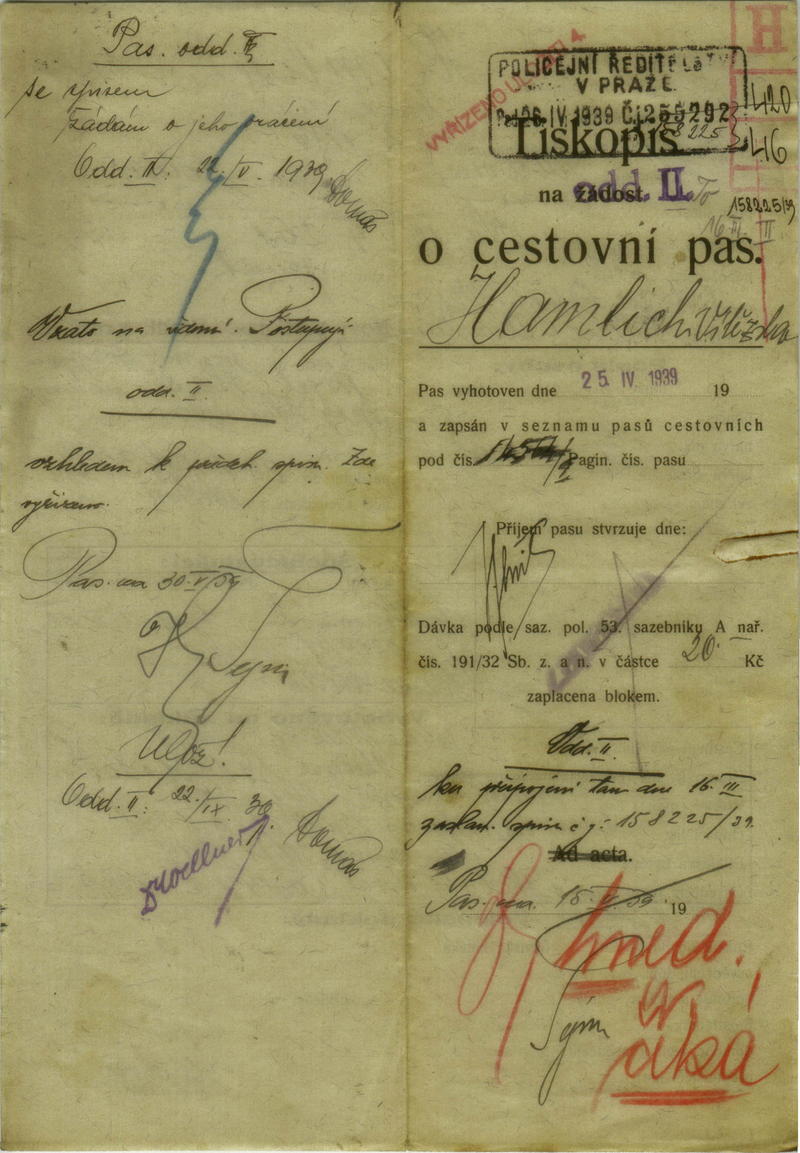 Pas. odd. II
se spisem
žádám o jeho vrácení
Odd. II. 22/V. 1939
Tomáš
Vzato na vědomí. Postupuji
odd. II.
vzhledem k přiděl. spisu. Zde
vyřízeno.
Pas. 30/V/39
Sým
Ulož!
Odd. II: 22/IX 39
Tomáš
H
VYŘÍZENO
POLICEJNÍ ŘEDITELSTVÍ
V PRAZE
26. IV 1939 Č.j. 255292
420
46
Tiskopis
8225
na žádost
odd. II.
158225/39
16 III
o cestovní pas.
Hamlich Vítězslav
Pas vyhotoven dne 25. IV 1939 19
a zapsán v seznamu pasů cestovních
pod čís. Pagin. čís. pasu
Příjem pasu stvrzuje dne:
Dávka podle saz. pol. 53. sazebníku A nař.
čís. 191/32 Sb. z. a n. v částce 20 Kč
zaplacena blokem.
Odd. II.
ku připojení tam dne 16. III
zaslan. spisu č.j.: 158225/39.
Ad acta.
Pas. 15. V. 39. 19
Ihned.
Sým